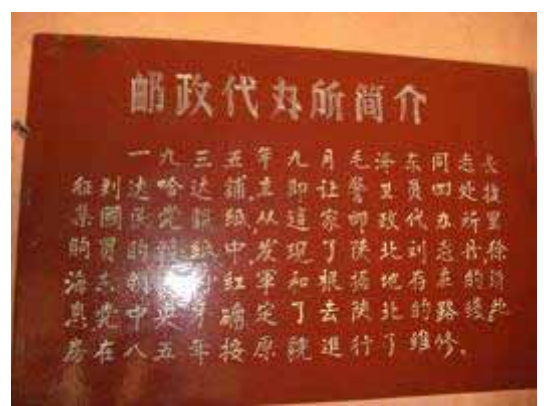 邮政代办所简介
一九三五年九月毛泽东同志长
征到达哈达铺,立即让警卫员四处搜
集國民党報紙,从這家邮政代办所里
的報紙中,发现了陕北刘志丹、徐
海東紅軍和根据地存在的消
息,党中央确定了去陕北的路线,此
房在八五年按原貌進行了維修。